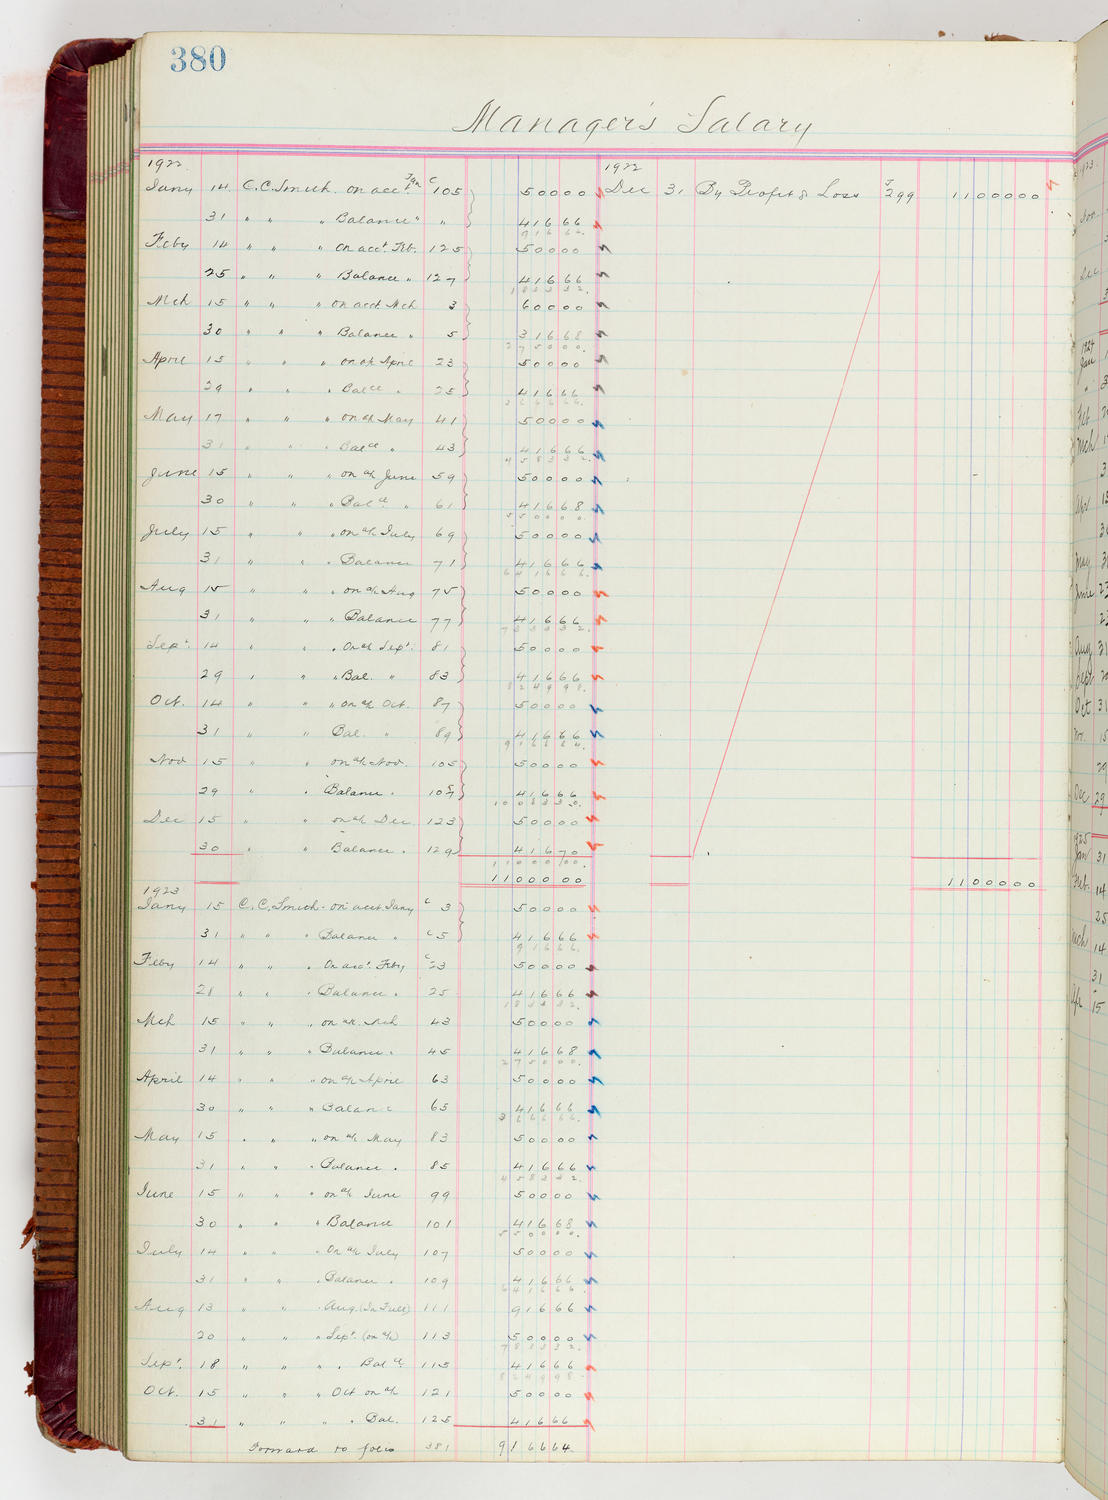 380
Manager's Salary
1922
Jany 14 C.C. Smith on acct. Jan C 105 50000
31 " " " Balance " " 41666
91666
Feby 14 " " " on acct. Feb. 125 50000
25 " " " Balance " 127 41666
183332
Mch 15 " " " on acct Mch 3 60000
30 " " " Balance " 5 31668
275000
April 15 " " " on a/c April 23 50000
29 " " " Balce " 25 41666
366666
May 17 " " " on a/c May 41 50000
31 " " " Balce " 43 41666
458332
June 15 " " " on a/c June 59 50000
30 " " " Balce " 61 41668
550000
July 15 " " " on a/c July 69 50000
31 " " " Balance 71 41666
641666
Aug 15 " " " on a/c Aug 75 50000
31 " " " Balance 77 41666
733332
Sept. 14 " " " On a/c Sept. 81 50000
29 " " " Bal. " 83 41666
824998
Oct. 14 " " " on a/c Oct. 87 50000
31 " " Bal. " 89 41666
916664
Nov 15 " " on a/c Nov. 105 50000
29 " " Balance " 107 41666
1008330
Dec 15 " " on a/c Dec 123 50000
30 " " Balance " 129 41670
1100000
1100000
1922
Dec 31 By Profit & Loss J 299 1100000
1100000
1923
Jany 15 C.C. Smith - on acct Jany C 3 50000
31 " " " Balance " C 5 41666
91666
Feby 14 " " " On acc't. Feby C 23 50000
28 " " " Balance " 25 41666
183332
Mch 15 " " " on a/c Mch 43 50000
31 " " " Balance " 45 41668
275000
April 14 " " " on a/c Apri 63 50000
30 " " " Balance 65 41666
366666
May 15 " " " on a/c May 83 50000
31 " " " Balance " 85 41666
458332
June 15 " " " on a/c June 99 50000
30 " " " Balance 101 41668
550000
July 14 " " " On a/c July 107 50000
31 " " " Balance " 109 41666
641666
Aug 13 " " " Aug. (In Full) 111 91666
20 " " " Sept. (on a/c) 113 50000
783332
Sept. 18 " " " " Balce 115 41666
824998
Oct. 15 " " " Oct on a/c 121 50000
31 " " " " Bal. 125 41666
Forward to folio 381 916664
1923
Nov
Dec
1924
Jan
Feb
Mch
Apr
May
June
Aug 31
Sept
Oct 31
Nov. 15
Dec 29
1925
Jan 31
Feb. 14
25
Mch 14
31
Apr 15